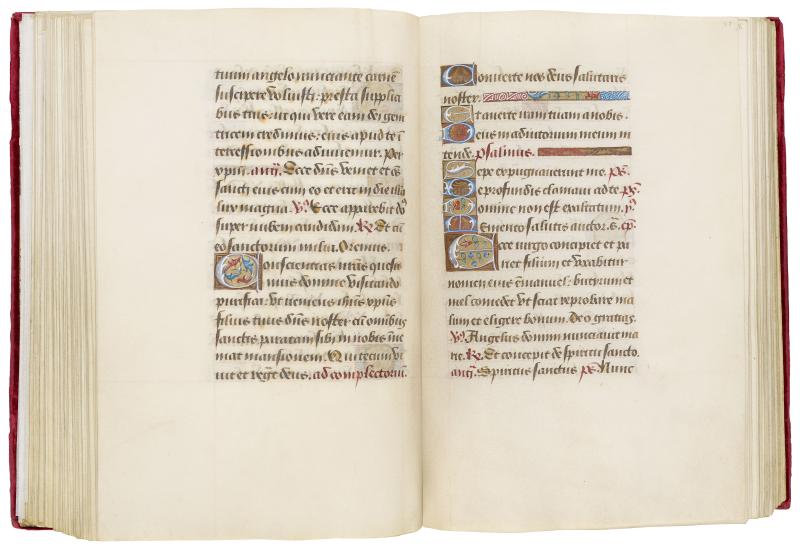 tuum angelo nunciante carnē
suscipere voluisti: presta supplici
bus tuis: ut qui vere eam dei gem
tricem credimus: eius apud te ī
tercessionibus adiuvemur. Per
xpm̄. antȳ. Ecce dn̄s veniet et oēs
sancti eius cum eo et erit in die illa
lux magna. v̄s. Ecce apparebit dn̄s
super nubem candidam. R̄. Et cū
eo sanctorum milia. Oremus.
Conscientias nr̄as quesu
mus domine visitando
purifica: ut veniens ihūs xpūs
filius tuus dn̄s noster cū omnibus
sanctis paratam sibi in nobis īue
niat mansionem. Qui tecum vi
vit et regn̄t deus. ad complectoriū.
Converte nos deus salutaris
noster.
Et averte iram tuam a nobis.
Deus in adiutorium meum in
tende. psalmus.
Sepe expugnaverunt me. p̄s.
De profundis clamavi ad te. p̄s.
Domine non est exaltatum. p̄s
Memento salutis auctor. G. cp̄.
Ecce virgo concipiet et pa
riet filium et vocabitur
nomen eius emanuel: butyrum et
mel comedet ut sciat reprobare ma
lum et eligere bonum. Deo gratias.
v̄s. Angelus domini nunciavit ma
rie. R̄. Et concepit de spiritu sancto.
antȳ. Spiritus sanctus p̄s. Nunc